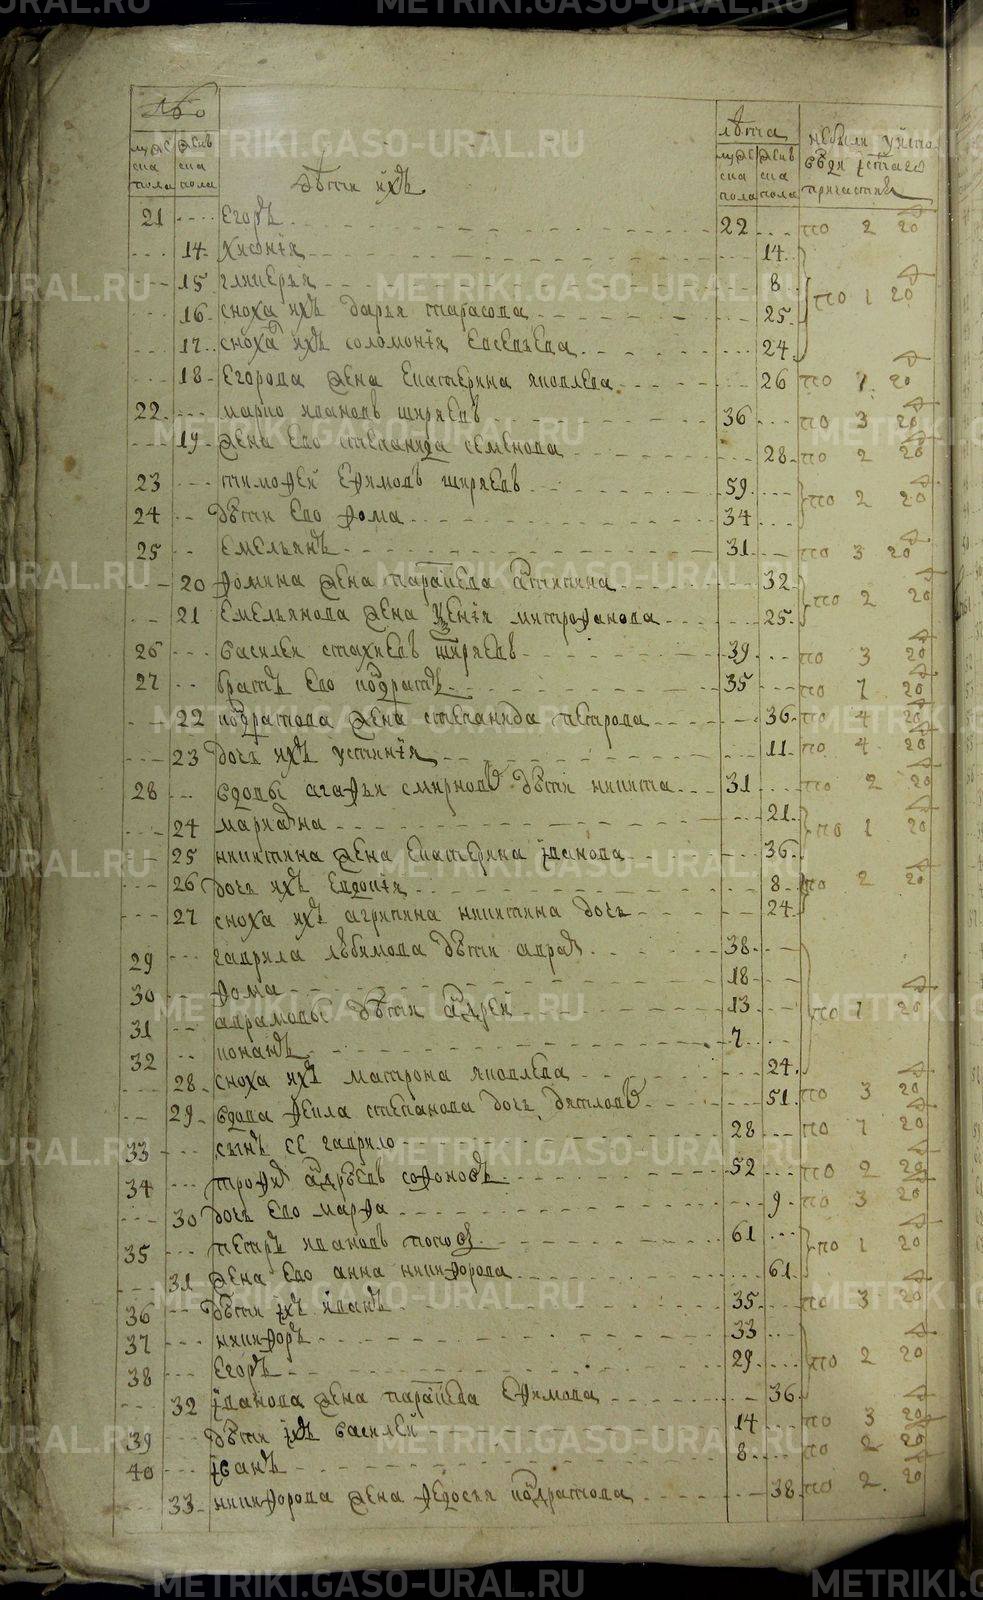 лѣта
муже ска пола
женв ска пола
муже ска пола
женв ска пола
дѣти ихъ
небыли у испо
веди
причастия
21 егоръ 22 по 2 20
14 хиония 14
15 гликерья 8 по 1 20
16 сноха ихъ дарья тарасова 25
17 сноха ихъ соломония евсевьева 24
18 егорова жена екатерина яковлева 26 по 1 20
22 марко ивановъ ширяевъ 36 по 3 20
19 жена ево степанида семенова 28 по 2 20
23 тимофей ефимовъ ширяевъ 59 по 2 20
24 дѣти ево фома 34
25 емельянъ 31 по 3 20
20 фомина жена параскева 32 по 2 20
21 емельянова жена ксения митрофанова 25
26 василеи ширяевъ 39 по 3 20
27 братъ ево кодратъ 35 по 1 20
22 кодратова жена степанида петрова 36 по 4 20
23 дочь ихъ устиния 11 по 4 20
28 вдовы агафьи смирновой дѣти никита 31 по 2 20
24 мариана 21 по 1 20
25 никитина жена екатерина иванова 36
26 дочь ихъ евдокия 8 по 2 20
27 сноха ихъ агрипина никитина дочь 24
29 гаврила любимова дѣти аврам 38
30 фома 18
31 аврамовы дѣти адрей 13 по 1 20
32 конанъ 7
28 сноха ихъ матрона яковлева 24
29 вдова фекла степанова дочь дятловой 51 по 3 20
33 сынъ ее гаврило 28 по 1 20
34 трофим адрѣевъ софоновъ 52 по 2 20
30 дочь ево марфа 9 по 3 20
35 петръ ивановъ попов 61 по 1 20
31 жена ево анна никифорова 61
36 дѣти ихъ иванъ 35 по 3 20
37 никифоръ 33
38 егоръ 29 по 2 20
32 иванова жена параскева ефимова 36
39 дѣти ихъ василей 14 по 3 20
40 иванъ 8 по 2 20
33 никифорова жена федосья кодратова 38 по 2 20
METRIKI.GASO-URAL.RU